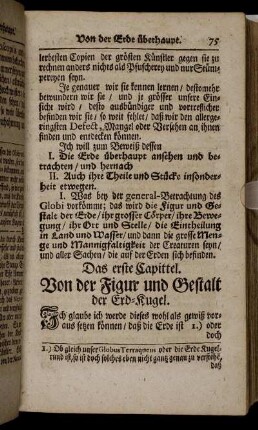 Von der Erde überhaupt. 75
lerbesten Copien der grösten Künstler gegen sie zu
rechnen anders nichts als Pfuscherey und nur Stüm-
pereyen seyn.
Je genauer wir sie kennen lernen / destomehr
bewundern wir sie / und je grösser unsere Ein-
sicht wird / desto ausbündiger und vortreflicher
befinden wir sie / so weit fehlet / daß wir den allerge-
ringsten Defect, Mangel oder Versehen an ihnen
finden und entdecken können.
Ich will zum Beweiß dessen
I. Die Erde überhaupt ansehen und be-
trachten / und hernach
II. Auch ihre Theile und Stücke insonder-
heit erwegen.
I. Was bey der general-Betrachtung des
Globi vorkömmt; das wird die Figur und Ge-
stalt der Erde / ihr grosser Cörper / ihre Bewe-
gung / ihr Ort und Stelle / die Eintheilung
in Land und Wasser / und dann die grosse Men-
ge und Mannigfaltigkeit der Creaturen seyn /
und aller Sachen / die auf der Erden sich befinden.
Das erste Capittel.
Von der Figur und Gestalt
der Erd-Kugel.
Ich glaube ich werde dieses wohl als gewiß vor-
aus setzen können / daß die Erde ist 1.) oder
doch
1.) Ob gleich unser Globus Terraqueus oder die Erde Kugel-
rund ist, so ist doch solches eben nicht gantz genau zu verstehe,
daß